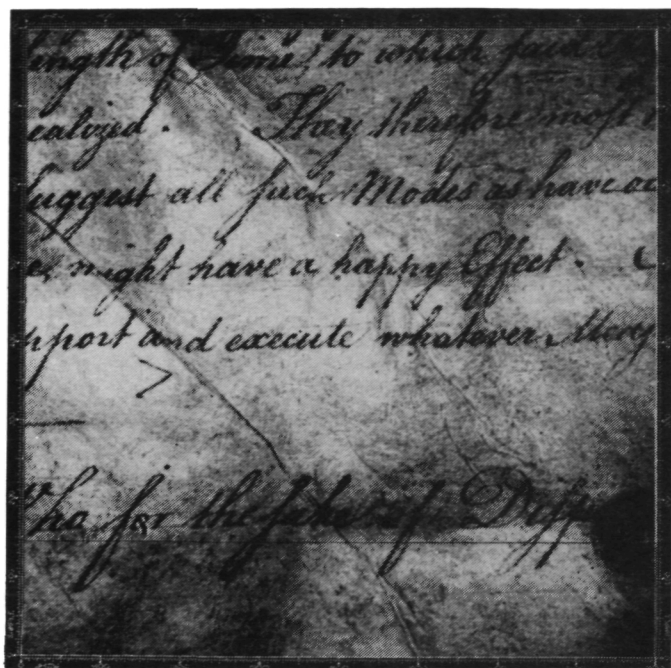 ength of Time, to which said
ealized. They therefore most
suggest all such Modes as have oc
might have a happy Effect.
pport and execute whatever Meas
who for the sake of Disp